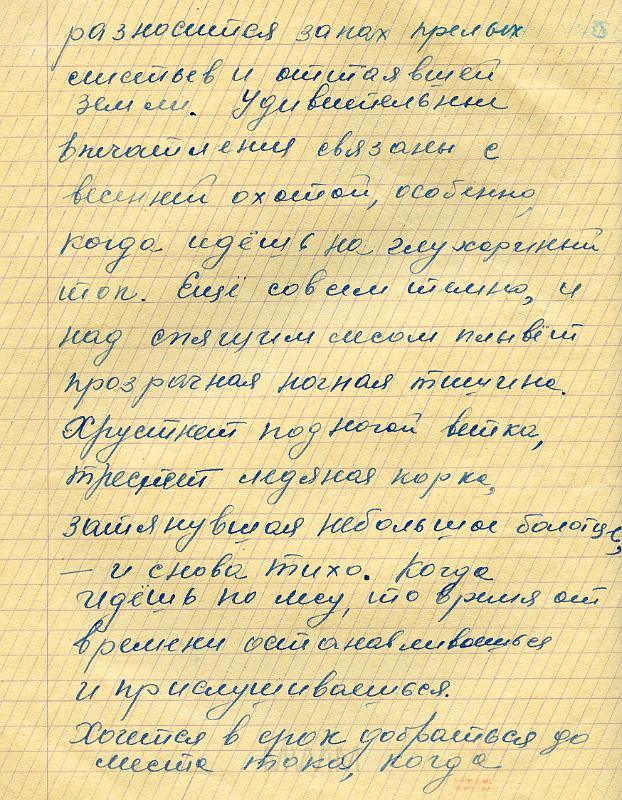 разносится запах прелых
листьев и оттаявшей
земли. Удивительные
впечатления связаны с
весенней охотой, особенно,
когда идёшь на глухариный
ток. Ещё совсем темно, и
над спящим лесом плывёт
прозрачная ночная тишина.
Хрустнет под ногой ветка,
треснет ледяная корка,
затянувшая небольшое болотце,
— и снова тихо. Когда
идёшь по лесу, то время от
времени останавливаешься
и прислушиваешься.
Хочется в срок добраться до
места тока, когда